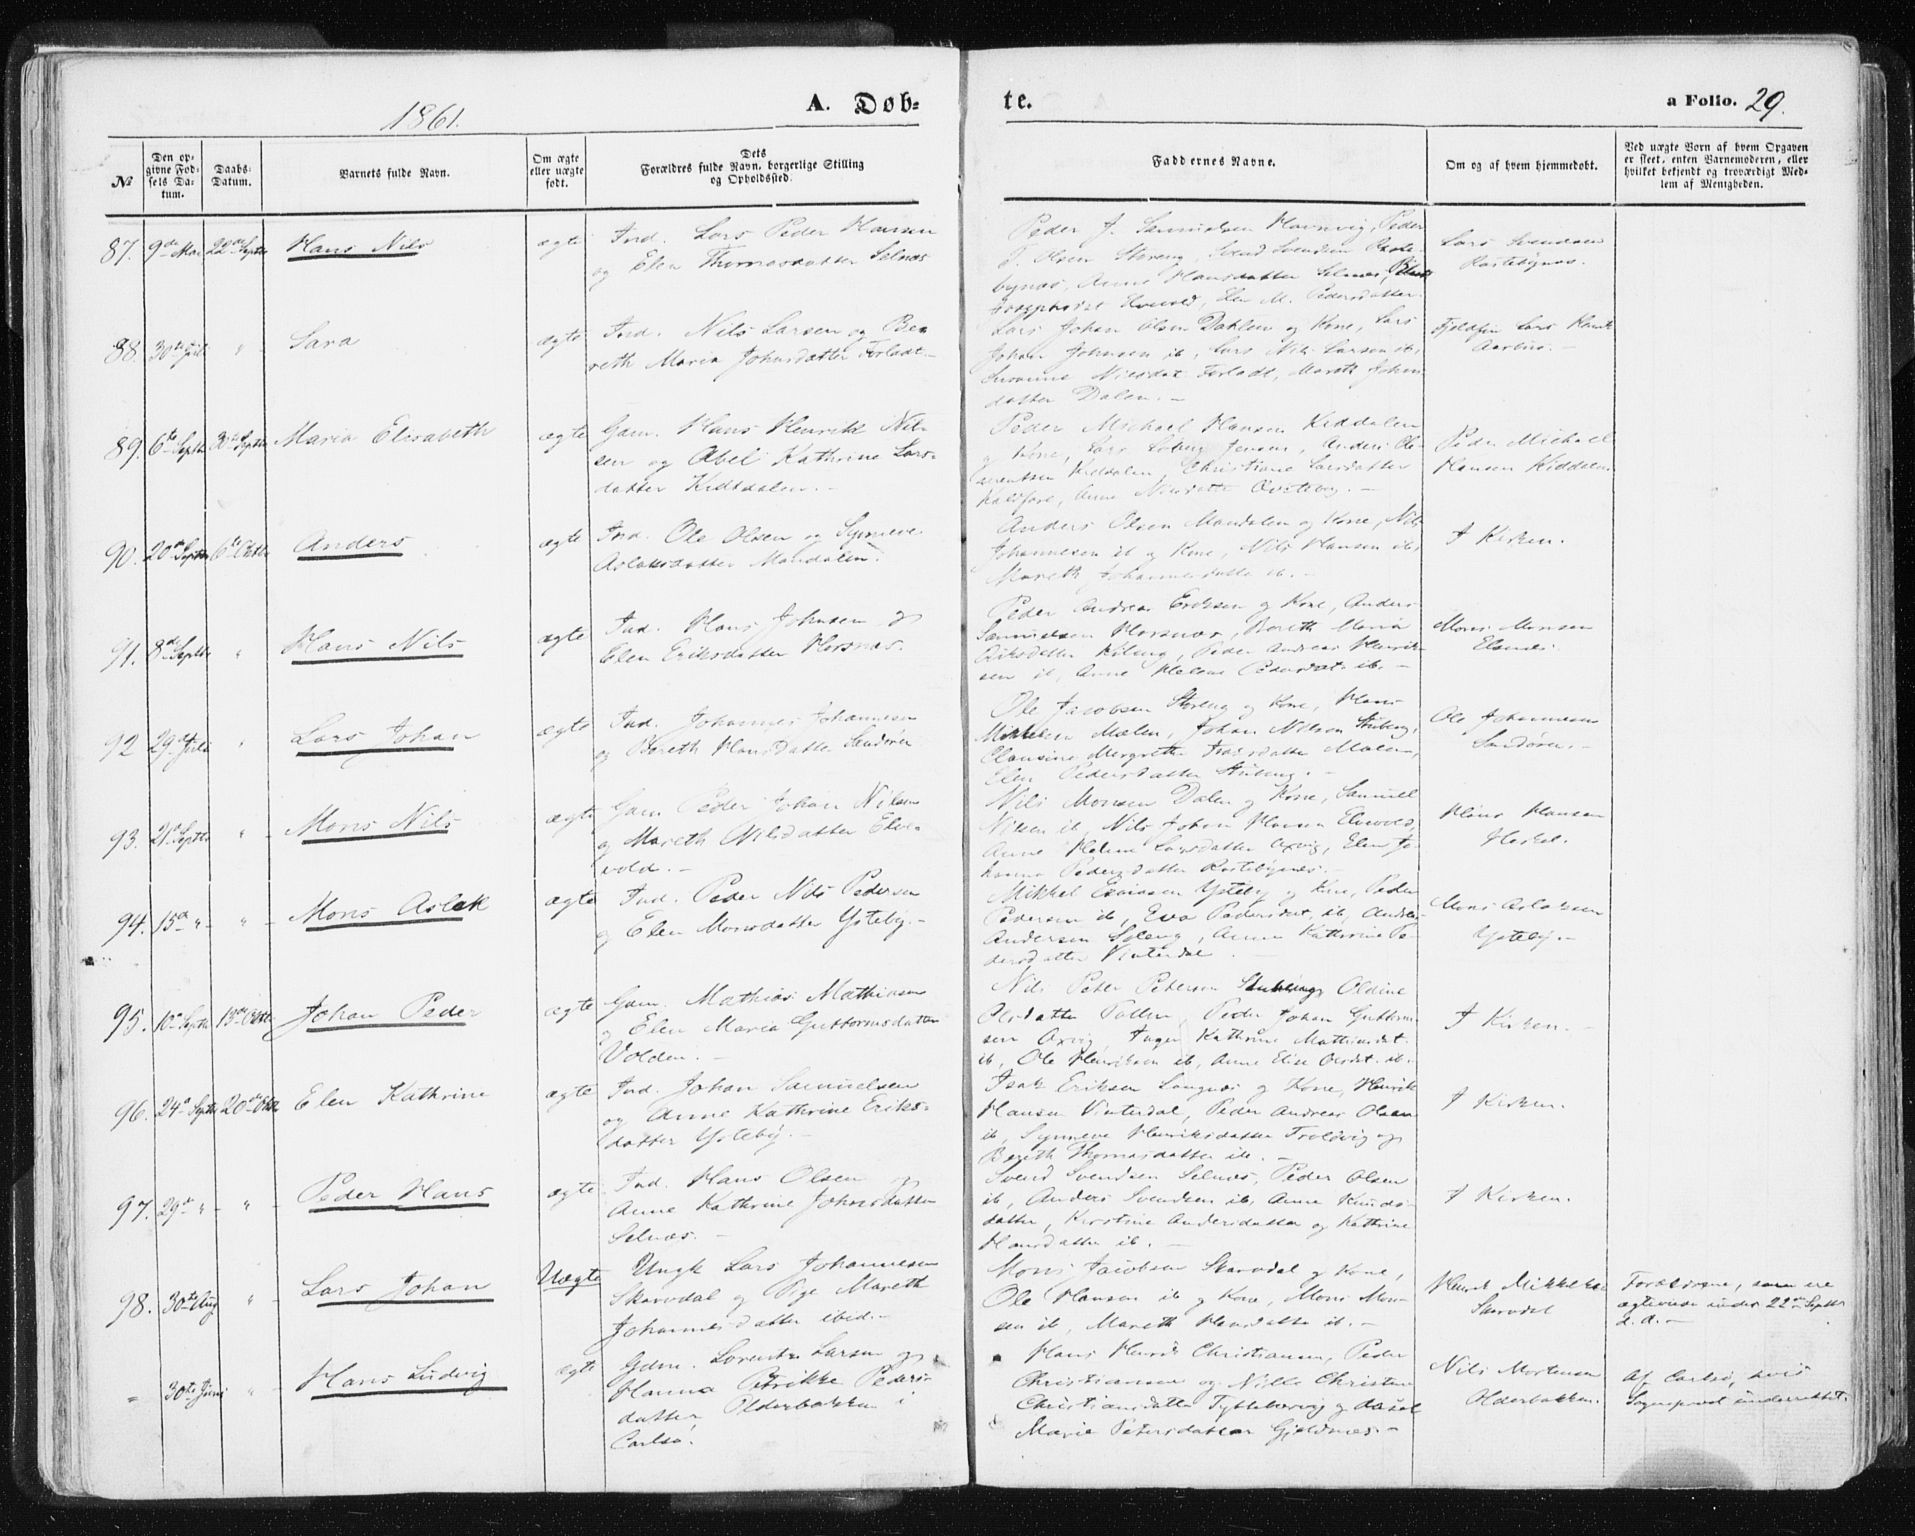 1861.
A. Døb-
te.
a Folio. 29.
№
Den op-
givne Fød-
sels Da-
tum.
Daabs-
Datum.
Barnets fulde Navn.
Om ægte
eller uægte
født.
Dets
Forældres fulde Navn, borgerlige Stilling
og Opholdssted.
Faddernes Navne.
Om og af hvem hjemmedøbt.
Ved uægte Børn af hvem Opgaven
er skeet, enten Barnemoderen, eller
hvilket bekjendt og troværdigt Med-
lem af Menigheden.
87. 9de Mai 22de Septbr Hans Nils ægte Ind. Lars Peder Hansen
og Elen Thomasdatter Selnæs
Peder J. Samuelsen Havnvig, Peder
Olsen Storeng, Svend Svendsen
bynæs, Anne Hansdatter Selnæs,
Elen M. Pedersdatter
Lars Svendsen
Rastebynæs.
88. 30te Juli " Sara ægte Ind. Nils Larsen og Be-
reth Maria Johnsdatter Forladt.-
Lars Johan Olsen Dahlen og Kone, Lars
Johan Johnsen ib, Lars Nils Larsen ib,
Susanne Nilsdat. Forladt, Mareth John
datter Dalen.-
Fjeldfin Lars Henrik
89. 6te Septbr 30te Septbr Maria Elisabeth ægte Gam. Hans Henrik Nil-
sen og Abel Kathrine Lars-
datter Kiddalen.-
Peder Michael Hansen Kiddalen
og Kone, Lars Jensen, Anders
Kiddalen, Christiane Larsdatter
Anne Nilsdatter
Peder Michael
Hansen Kiddalen
90. 20de Septbr 6te Oktbr Anders ægte Ind. Ole Olsen og Synneve
Aslaksdatter Mandalen.
Anders Olsen Mandalen og Kone, Nils
Johannesen ib og Kone, Nils Hansen ib,
Mareth Johannesdatter ib.-
I Kirken.
91. 8de Septbr " Hans Nils ægte Ind. Hans Johnsen og
Elen Eriksdatter Horsnæs.
Peder Andreas Eriksen og Kone, Anders
Samuelsen Horsnæs, Bereth Maria
Eriksdatter Kileng, Peder Andreas Henrik-
sen ib, Anne Helene Pedersdat. ib.-
Mons Monsen
Elsnæs.
92 29de Juli " Lars Johan ægte Ind. Johannes Johannesen
og Bereth Hansdatter Sandøren
Ole Jacobsen Storeng og Kone, Hans
Mikkelsen Mælen, Johan Nilsen Stubeng,
Clausine Mergrethe Isaksdatter Mælen,
Elen Pedersdatter Stubeng.-
Ole Johannesen
Sandøren.-
93. 21de Septbr " Mons Nils ægte Gam Peder Johan Nilsen
og Mareth Nilsdatter Elve-
vold.-
Nils Monsen Dalen og Kone, Samuel
Nilsen ib, Nils Johan Hansen Elvevold,
Anne Helene Larsdatter Oxvig, Elen Jo-
hanna Pedersdatter Rastebynæs.-
Hans Hansen
94. 15de " " Mons Aslak ægte Ind. Peder Nils Pedersen
og Elen Monsdatter Ysteby.-
Mikkel Ysteby og Kone, Peder
Pedersen ib, Eva Pedersdat. ib, Anders
Andersen Soleng, Anne Kathrine Pe-
dersdatter Vinterdal.-
Mons Aslaksen
Ysteby.-
95. 10de Septbr 13de Oktbr Johan Peder ægte Gam. Mathias Mathiasen
og Elen Maria Guttormsdatter
Volden.-
Nils Peter Pedersen Stubeng, Oldine
Olsdatter Peder Johan Guttorm-
sen Oxvig, Inger Kathrine Mathiasdat.
ib, Ole Henriksen ib, Anne Elise Olsdat. ib.
I Kirken.-
96. 24de Septbr 20de Oktbr Elen Kathrine ægte Ind. Johan Samuelsen
og Anne Kathrine Eriks-
datter Ysteby.-
Isak Eriksen Langnæs og Kone, Henrik
Hansen Vinterdal, Peder Andreas Olsen
ib, Synneve Henriksdatter Trolvvig og
Bereth Thomasdatter ib.-
I Kirken.
97. 29de " " Peder Hans ægte Ind. Hans Olsen og
Anne Kathrine Johnsdatter
Selnæs.-
Svend Svendsen Selnæs, Peder Olsen
ib, Anders Svendsen ib, Anne Knuds-
datter, Kirstine Andersdatter og Kathrine
Hansdatter ib.-
I Kirken.
98. 30te Aug " Lars Johan Uægte Ungk. Lars Johannesen
Skarvdal og Pige Mareth
Johannesdatter ibid.-
Mons Jacobsen Skarvdal og Kone,
Ole Hansen ib og Kone, Mons Mon-
sen ib, Mareth Hansdatter ib.-
Henrik Mikkelsen
Skarvdal
Forældrene, som ere
ægteviede under 22de Septbr
d. A.-
" 30te Juni " Hans Ludvig ægte Gdm. Lorents Larsen og
Hanna Petrikke Peders-
datter Olderbakken i
Carlsø.
Hans Henrik Christiansen, Peder
Christiansen og Nille Christine
Christiansdatter Tyttebærvig og
Marie Petersdatter Gjeldnæs.-
Nils Mortensen
Olderbakken.
Af Carlsø, hvis
Sogneprest underrettet.